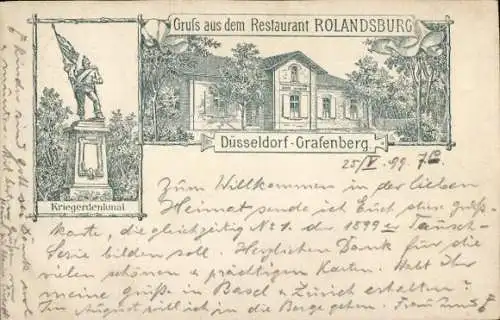 Gruss aus dem Restaurant ROLANDSBURG
Düsseldorf-Grafenberg
Kriegerdenkmal
25/V. 99.
Zum Willkommen in der lieben
Heimat sende ich Euch diese Grüß-
karte, die gleichzeitig No 1. der 1899er Tausch-
Serie bilden soll. Herzlichen Dank für die
vielen schönen & prächtigen Karten. Habt Ihr
meine Grüße in Basel & Zürich erhalten?
Im August will ich in die Berge gehen.
Kinder sind Gott sei Dank